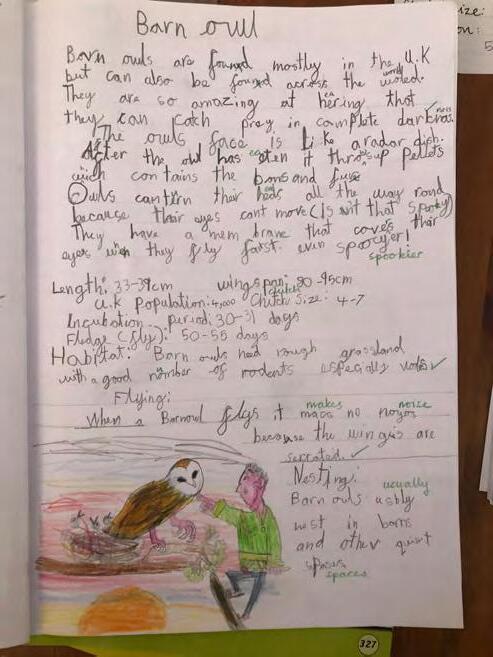 Barn owl
Barn owls are found mostly in the U.K
but can also be found across the woled. world
They are so amazing at hering that ea
they can catch prey in complete darkness
The owls face is like a radar dish.
After the owl has eten it throws up pellets ea
wich contains the bons and fur
Owls can trn their heds all the way rond head
because their eyes cont move (Is nit that spooky)
They have a mem brane that covers their
eyes when they fly farst. even spoocyer!
spookier
Length: 33-39cm wingspan: 80-95cm
U.K Population: 4,000 Clutch Size: 4-7 clutch
Incubation period: 30-31 days
Fledge (fly): 50-55 days
Habitat: Barn owls need rough grassland
with a good number of rodents especially voles ✓
Flying: makes noize
When a Barnowl flys it macs no noyos
because the wings are
serrated. ✓
Nesting: usually
Barn owls usbly
nest in barns
and other quiat
spases.
spaces
327